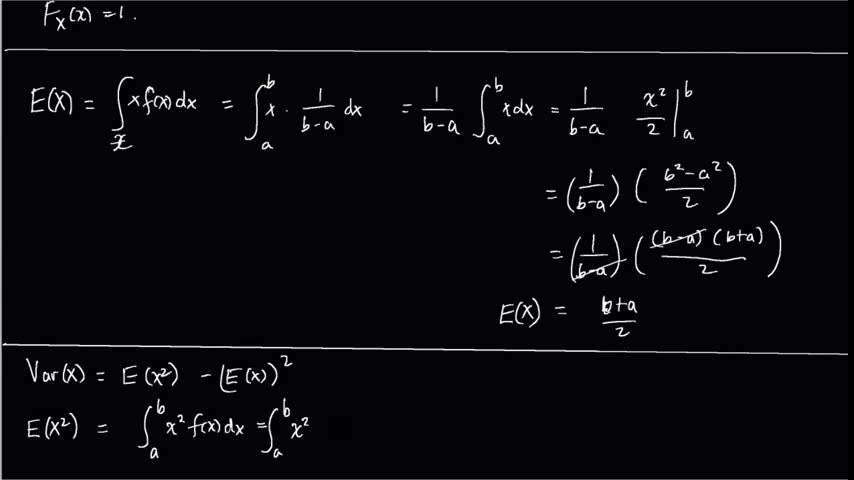 F_X(x) = 1.
E(X) = ∫_X x f(x) dx = ∫_a^b x · 1/(b-a) dx = 1/(b-a) ∫_a^b x dx = 1/(b-a) x²/2 |_a^b
= (1/(b-a)) ((b²-a²)/2)
= (1/(b-a)) ((b-a)(b+a)/2)
E(X) = (b+a)/2
Var(X) = E(X²) - (E(X))²
E(X²) = ∫_a^b x² f(x) dx = ∫_a^b x²